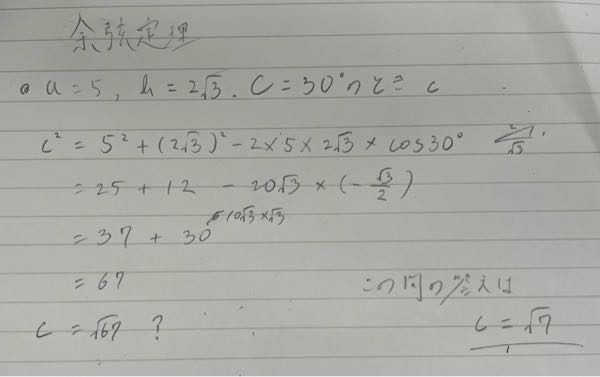 余弦定理
a = 5, b = 2√3. C = 30°のとき c
c² = 5² + (2√3)² - 2×5×2√3 × cos30°
= 25 + 12 - 20√3 × (-√3/2)
10√3×√3
= 37 + 30
= 67
c = √67 ?
この問の答えは
c = √7